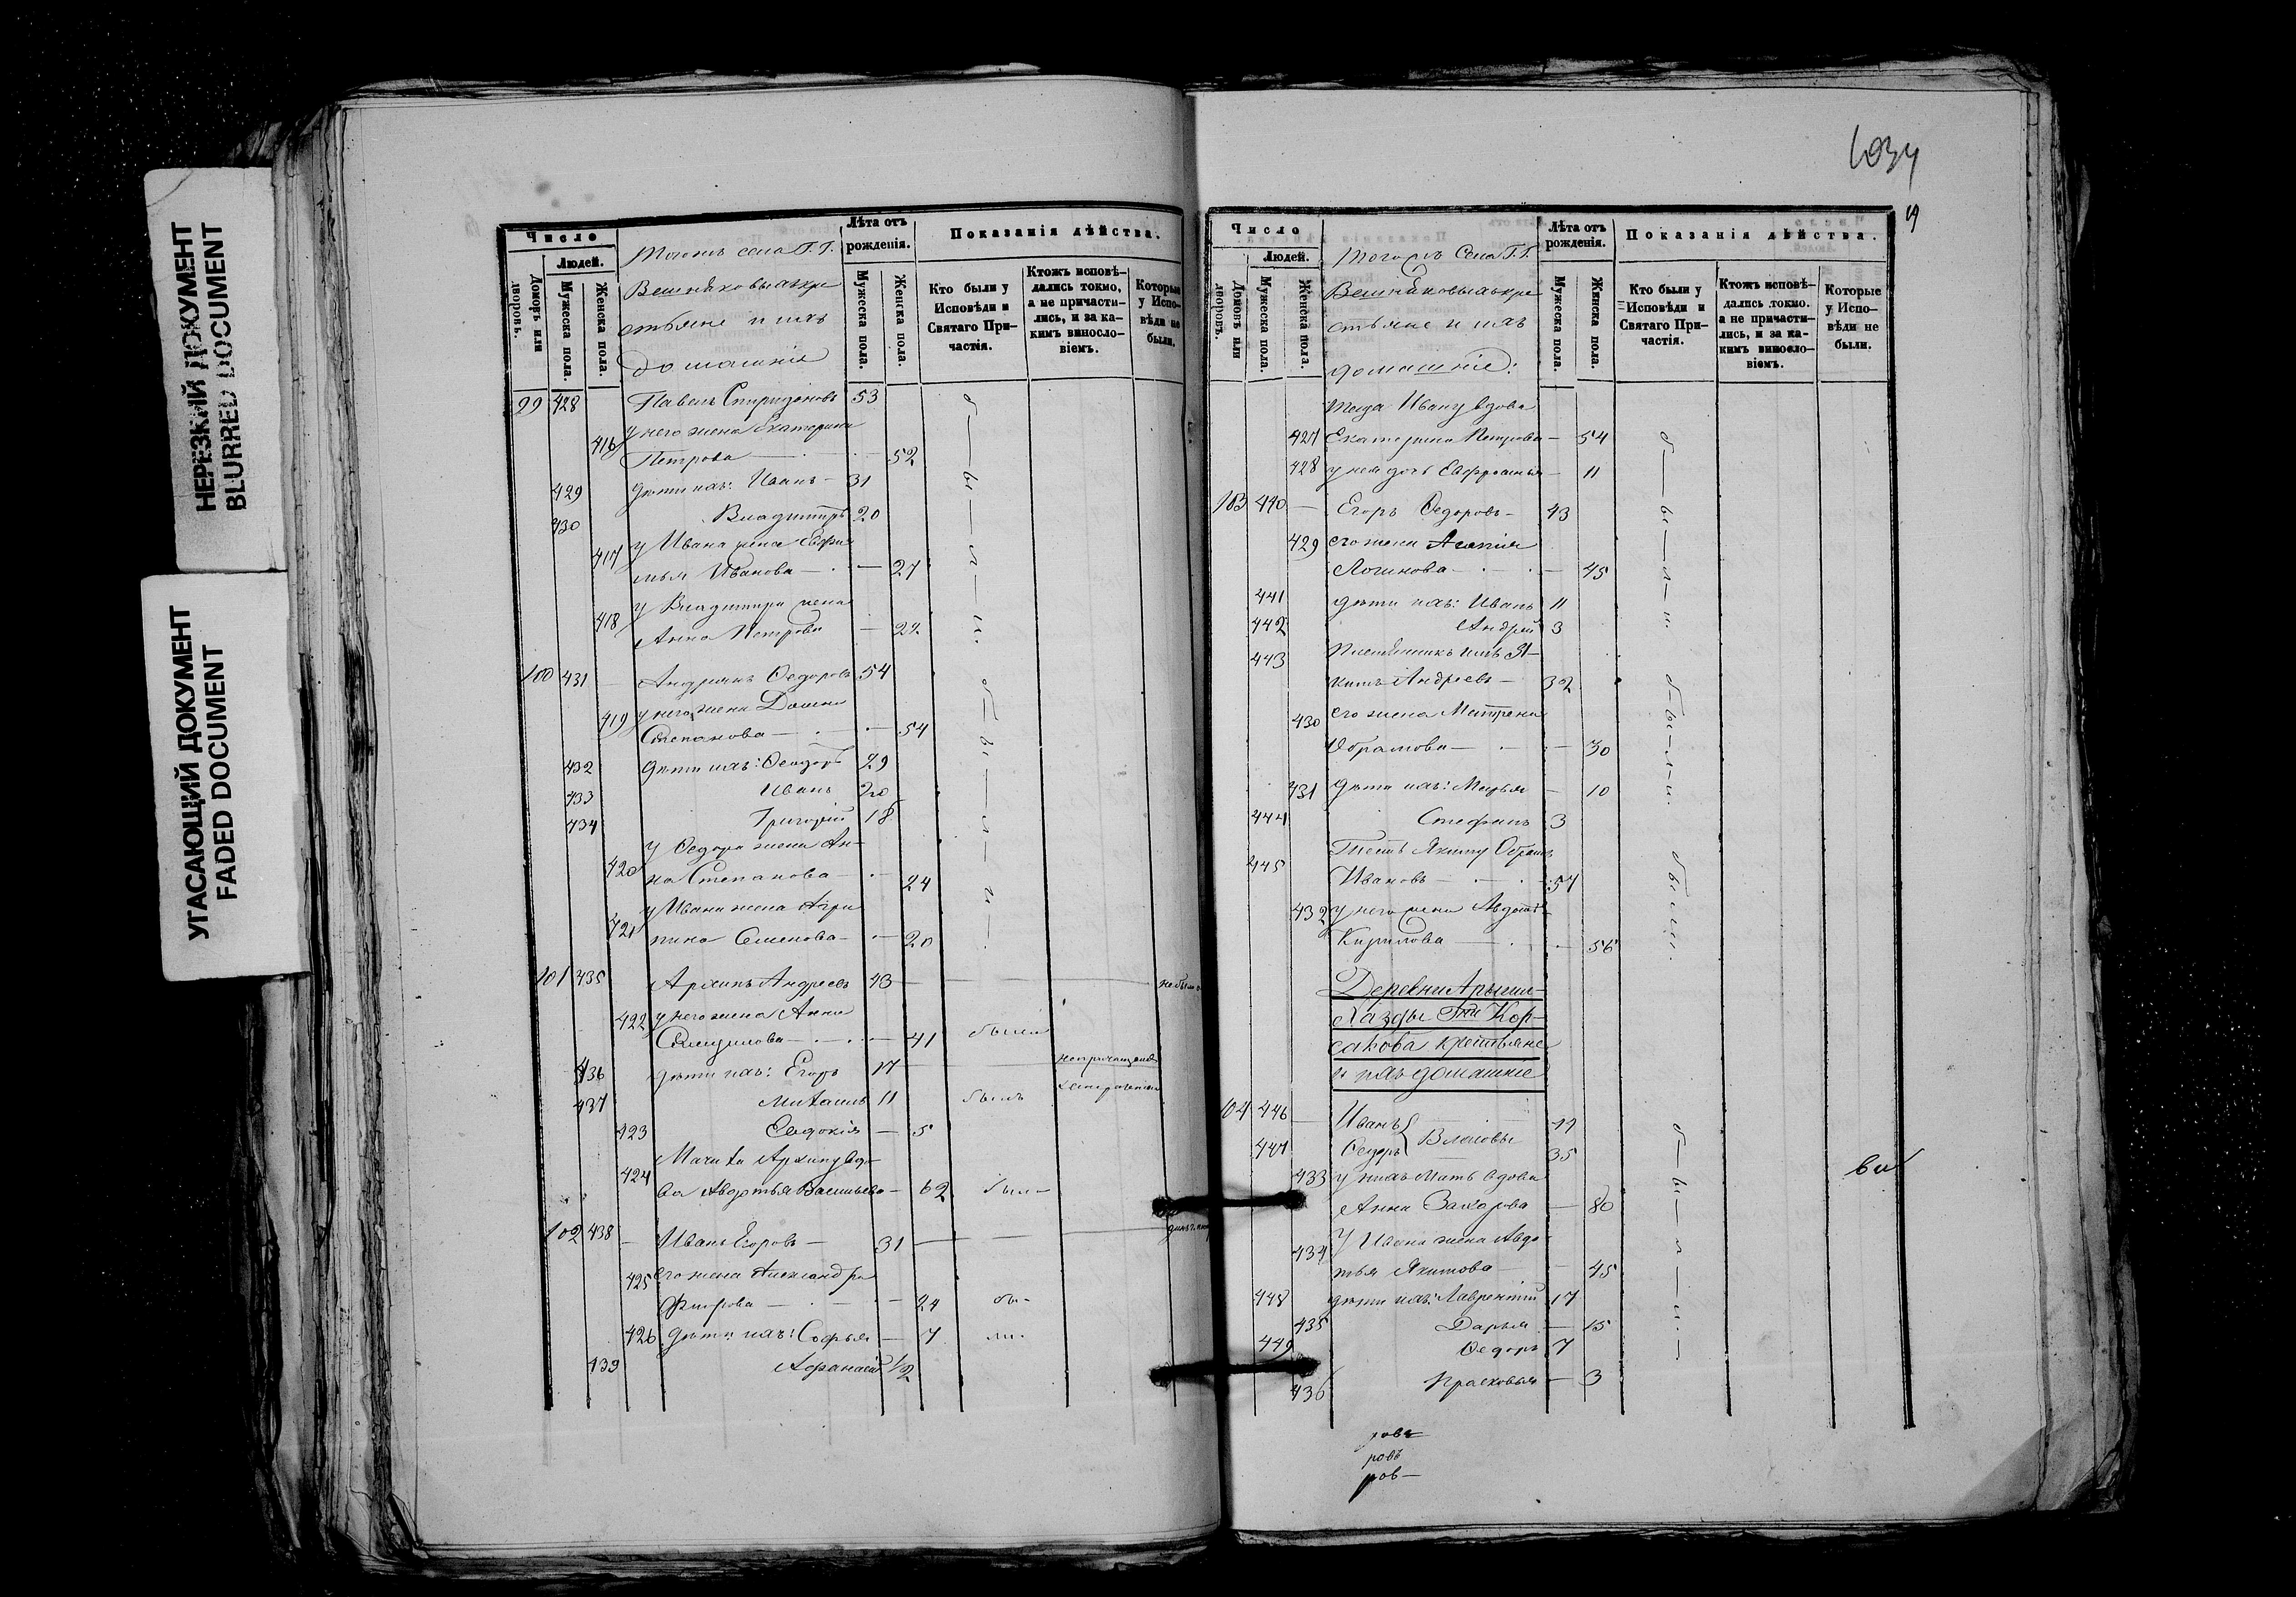 НЕРЕЗКИЙ ДОКУМЕНТ
BLURRED DOCUMENT
УГАСАЮЩИЙ ДОКУМЕНТ
FADED DOCUMENT
Число
Людей.
Домовъ или дворовъ.
Мужеска пола.
Женска пола.
села Г.Г.
и ихъ
домашніе
Лѣта отъ рожденія.
Мужеска пола.
Женска пола.
Показанія дѣйства.
Кто были у Исповѣди и Святаго При-частія.
Ктожъ исповѣ-дались токмо, а не причасти-лись, и за ка-кимъ винословіемъ.
Которые у Испо-вѣди не были.
99 428 Павелъ Спиридоновъ 53
416 у него жена Екатерина
Петрова 52
429 дѣти ихъ: Иванъ 31
430 Владимиръ 20
417 у Ивана жена
Иванова 27
418 у Владимира жена
Анна Петрова 22
были
100 431 Андрианъ Ѳедоровъ 54
419 у него жена
Степанова 54
432 дѣти ихъ: Ѳеодоръ 29
433 Иванъ 20
434 Григорій 18
у Ѳедора жена Ан-
420 на Степанова 24
у Ивана жена Агри
421 пина Семенова 20
были
101 435 Архипъ Андреевъ 43
422 у него жена Анна
41 были
436 дѣти ихъ: Егоръ 17
437 Михаилъ 11 былъ
423 Евдокія 5
Мачиха Архипу вдо-
424 ва Авдотья Васильева 62 был
102 438 Иванъ Егоровъ 31
425 его жена Александра
24 бы-
426 дѣти ихъ: Софья 7 ли.
439 Афанасій 1/2
1034
19
Число
Людей.
Домовъ или дворовъ.
Мужеска пола.
Женска пола.
Тогожъ Села Г.Г.
и ихъ
домашніе:
Лѣта отъ рожденія.
Мужеска пола.
Женска пола.
Показанія дѣйства.
Кто были у Исповѣди и Святаго При-частія.
Ктожъ исповѣ-дались токмо. а не причасти-лись, и за ка-кимъ винословіемъ.
Которые у Испо-вѣди не были.
теща Ивану вдова
427 Екатерина Петрова 54
428 у нея дочь Евфросинья 11
103 440 Егоръ Ѳедоровъ 43
429 его жена Агапія
Логинова 45
441 дѣти ихъ: Иванъ 11
442 Андрей 3
были
443 Племянникъ ихъ Я-
кимъ Андреевъ 32
430 его жена Матрена
Абрамова 30
431 дѣти ихъ: Марья 10
444 Стефанъ 3
были
Тесть Якиму Абрамъ
445 Ивановъ 57
432 у него жена Авдотья
Кирилова 56
были.
Деревни
Кор-
сакова крестьяне
и ихъ домашніе
104 446 Иванъ
447 Ѳедоръ Власовы 35
433 у нихъ мать вдова
Анна Захарова 80
434 У Ивана жена Авдо-
тья Якимова 45
448 дѣти ихъ: Лаврентій 17
435 Дарья 15
449 Ѳедоръ 7
436 Прасковья 3
были
ровъ
ров